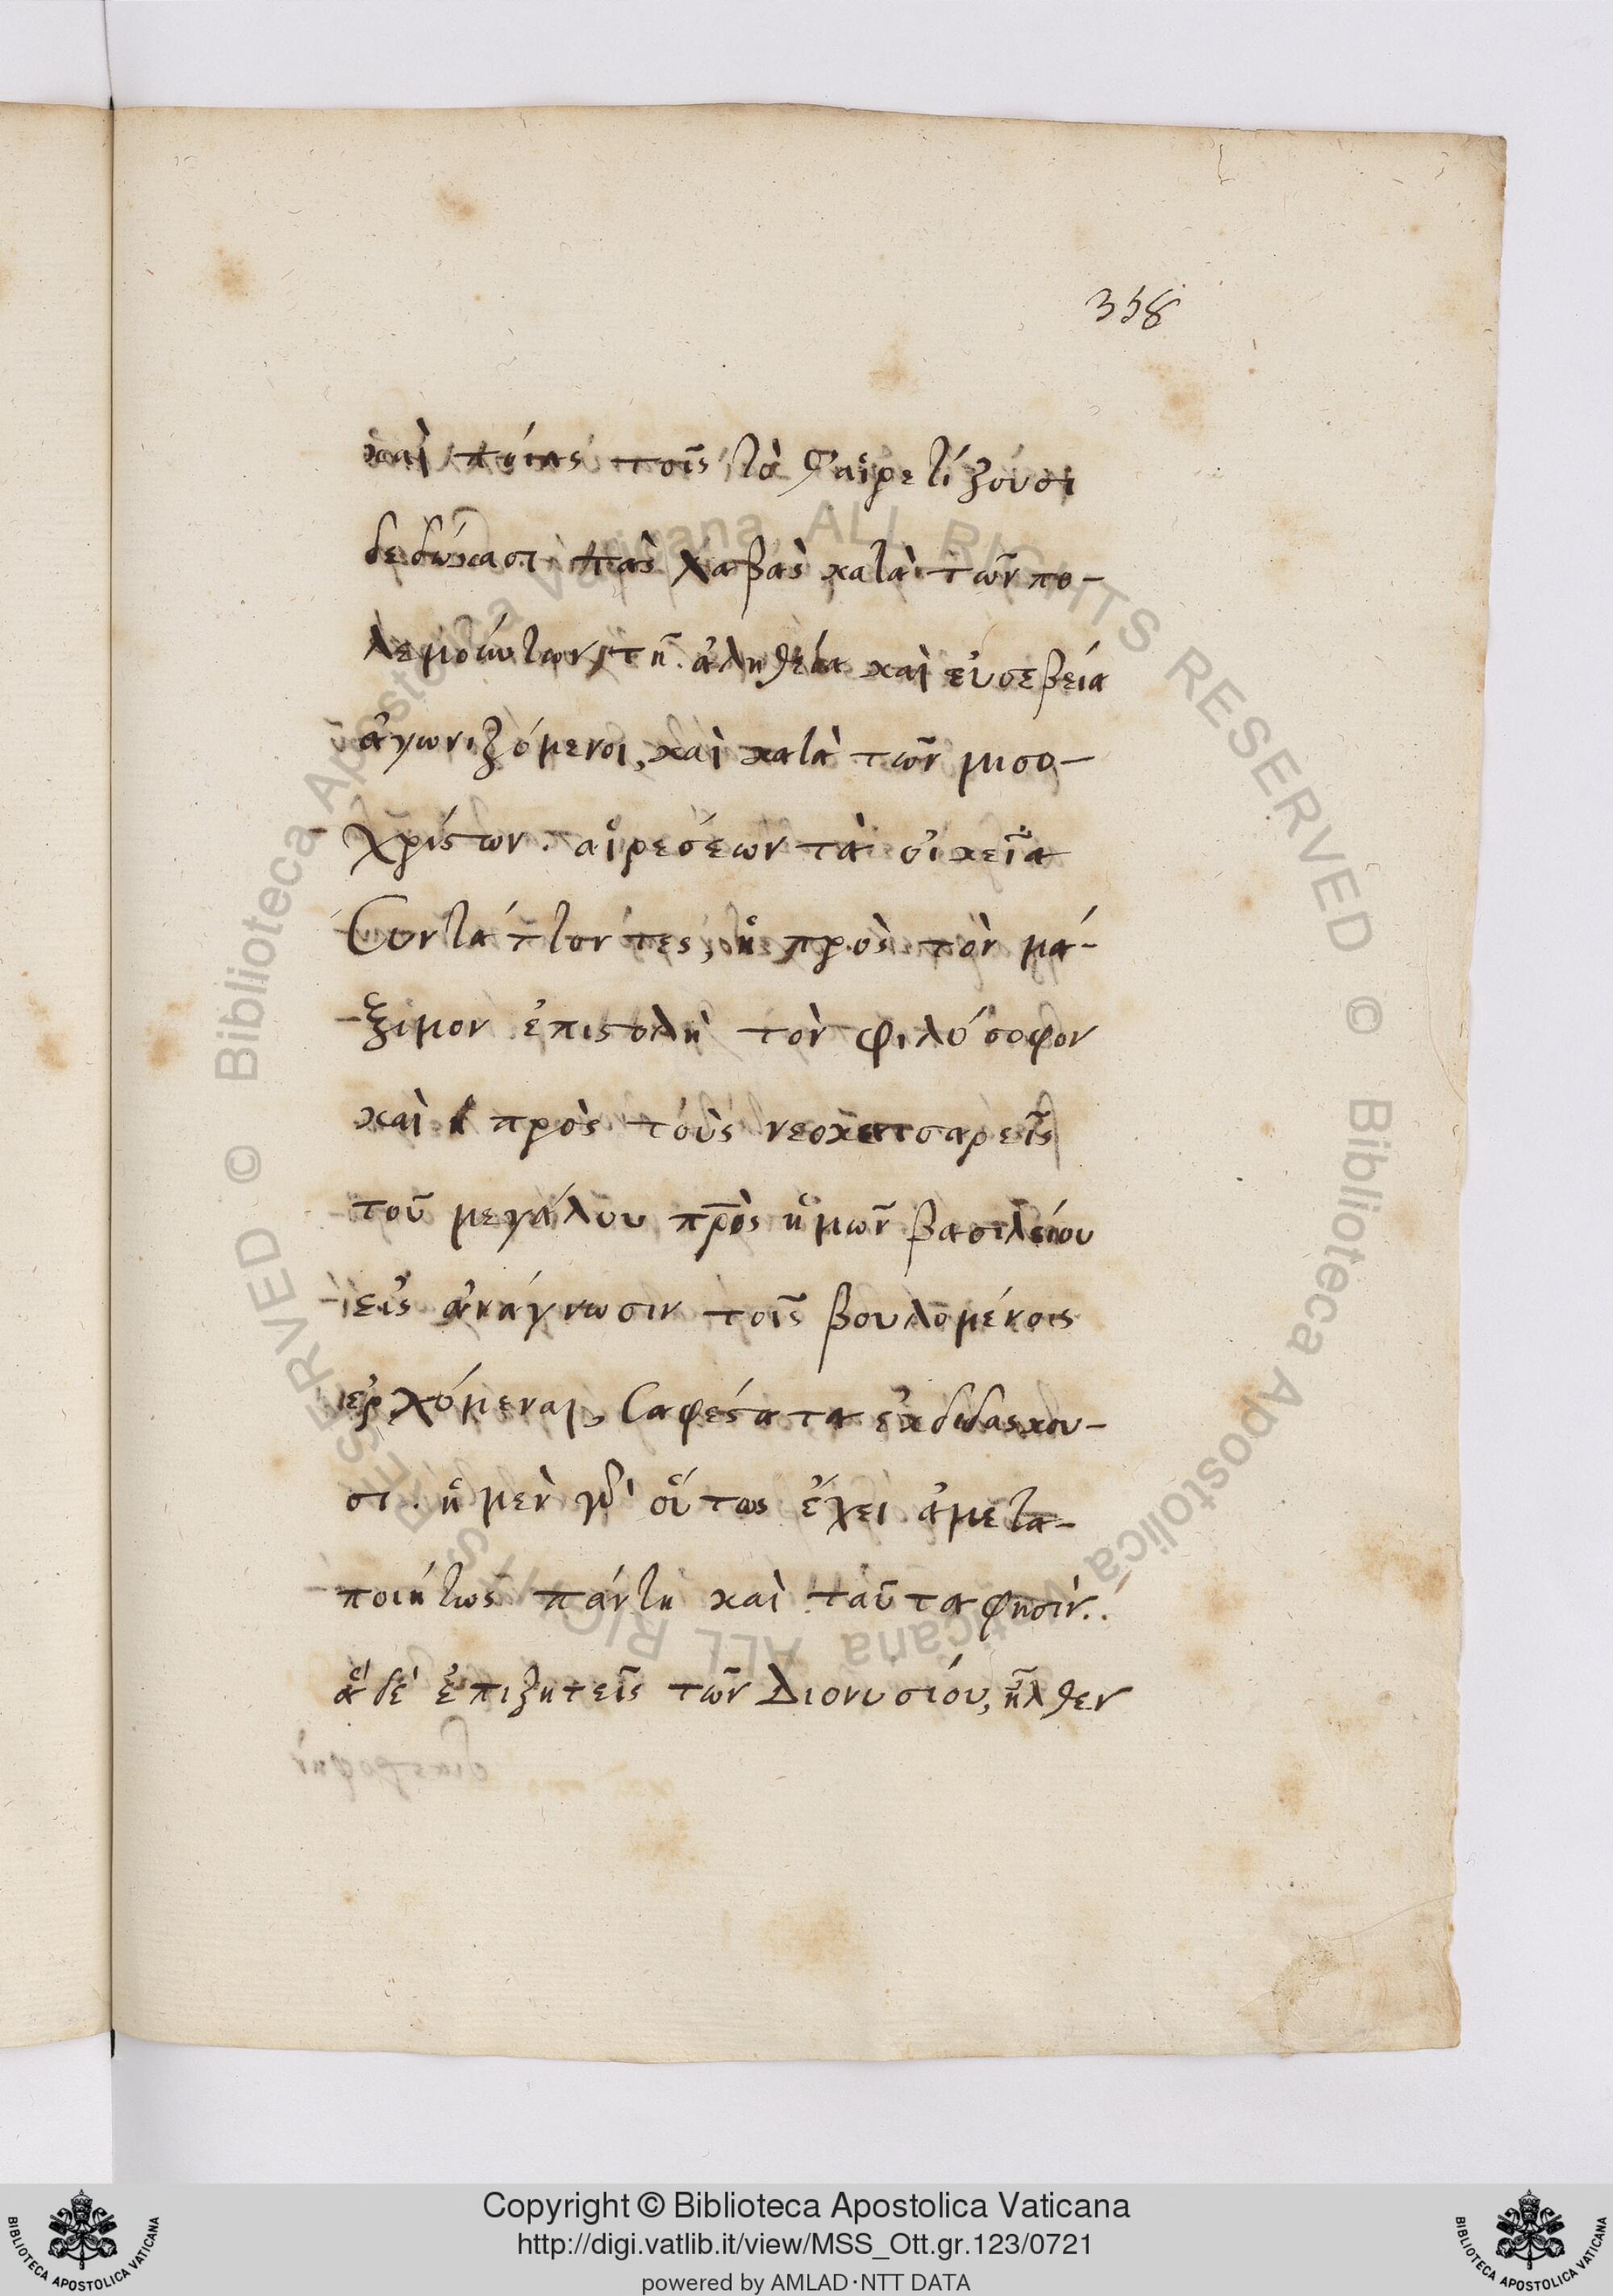 358
καὶ ποίας τοῖς τὰ Σαἱρετίζουσι
δεδώκασι τὰς λαβὰς κατὰ τῶν πο-
λεμούντων τῇ ἀληθεία καὶ εὐσεβεία
ἀγωνιζόμενοι, καὶ κατὰ τῶν μισο-
χρίστων αἱρεσέων τὰ οἰκεῖα
συντάττοντες, ἡ πρὸς τὸν μά-
ξιμον ἐπιστολὴ τὸν φιλόσοφον
καὶ ἡ πρὸς τοὺς νεοκαισαρεῖς
τοῦ μεγάλου π̅ρ̅ὸς ἡμῶν βασιλείου
εἰς ἀνάγνωσιν τοῖς βουλομένοις
ἐρχόμεναι, σαφέστατα ἐκδιδάσκου-
σι. ἡ μὲν γὰρ οὕτως ἔχει ἀμετα-
ποιήτως πάντη καὶ ταῦτα φησίν..
ἃ δὲ ἐπιζητεῖς τῶν Διονυσίου, ἦλθεν
Copyright © Biblioteca Apostolica Vaticana
http://digi.vatlib.it/view/MSS_Ott.gr.123/0721
powered by AMLAD·NTT DATA
BIBLIOTECA APOSTOLICA VATICANA
BIBLIOTECA APOSTOLICA VATICANA
© Biblioteca Apostolica Vaticana ALL RIGHTS RESERVED
© Biblioteca Apostolica Vaticana ALL RIGHTS RESERVED